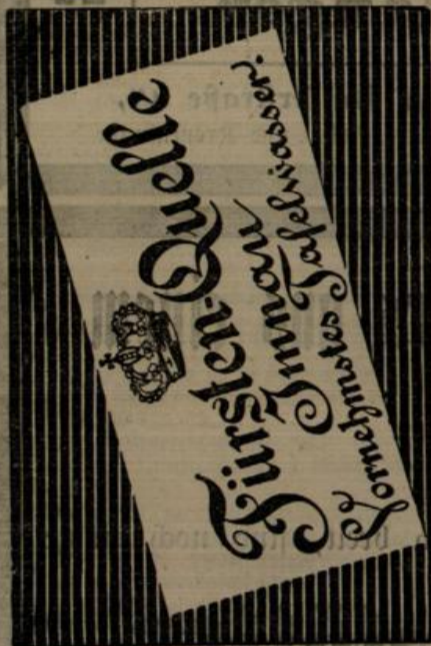 Fürsten-Quelle
Imnau
Vornehmstes Tafelwasser.